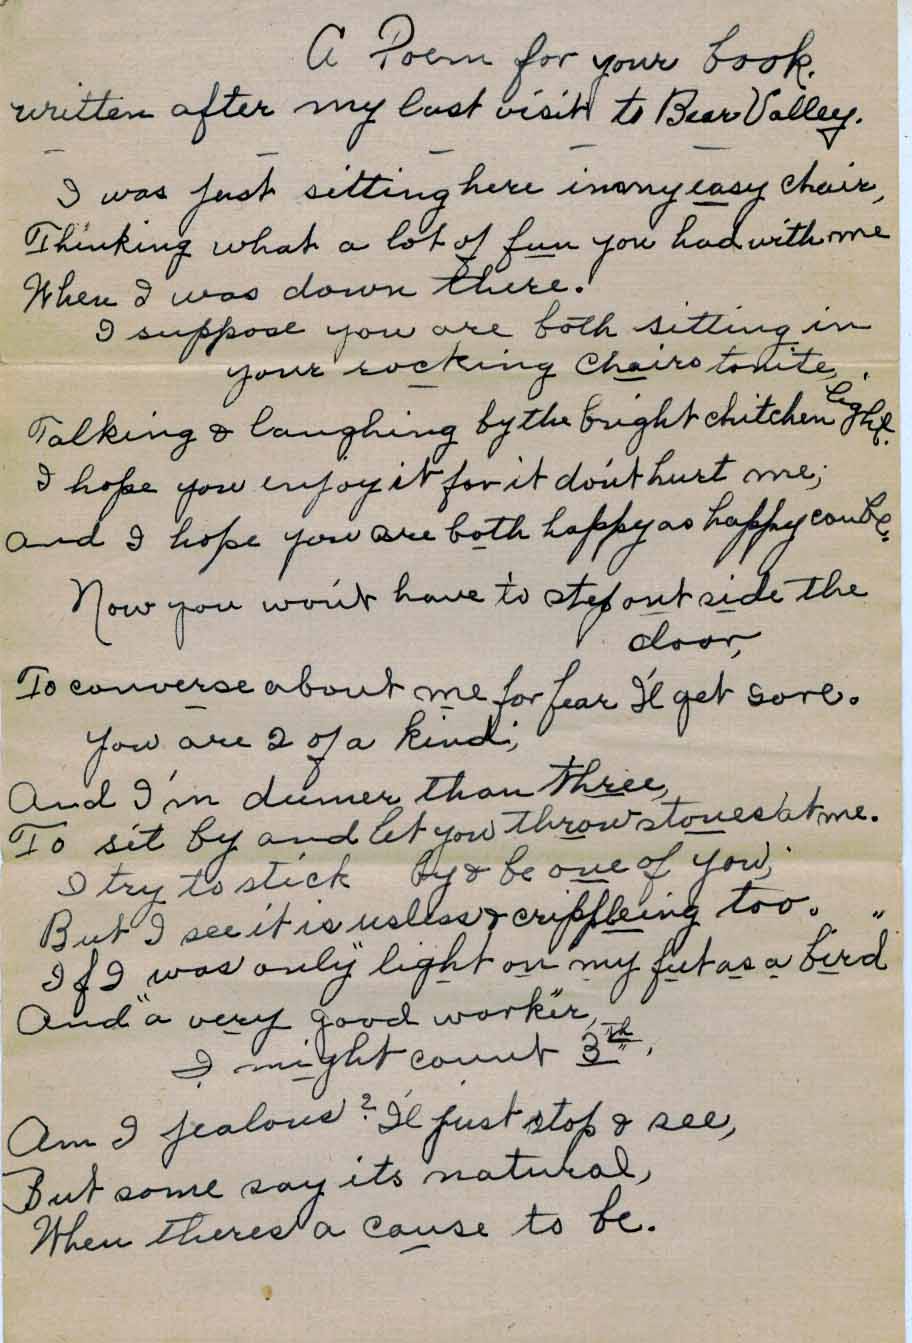 A Poem for your book.
written after my last visit to Bear Valley.
I was just sitting here in my easy chair,
Thinking what a lot of fun you had with me
When I was down there.
I suppose you are both sitting in
your rocking chairs tonite,
Talking & laughing by the bright chitchen light.
I hope you enjoy it for it do'nt hurt me;
And I hope you are both happy as happy can be.
Now you wo'nt have to step out side the
door,
To converse about me for fear I'l get sore.
You are 2 of a kind;
And I'm dumer than three,
To sit by and let you throw stones at me.
I try to stick by & be one of you;
But I see it is usless & crippleing too.
If I was only "light on my feet as a bird"
And "a very good worker",
I might count 3th.
Am I jealous? I'l just stop & see,
But some say its natural,
When theres a cause to be.